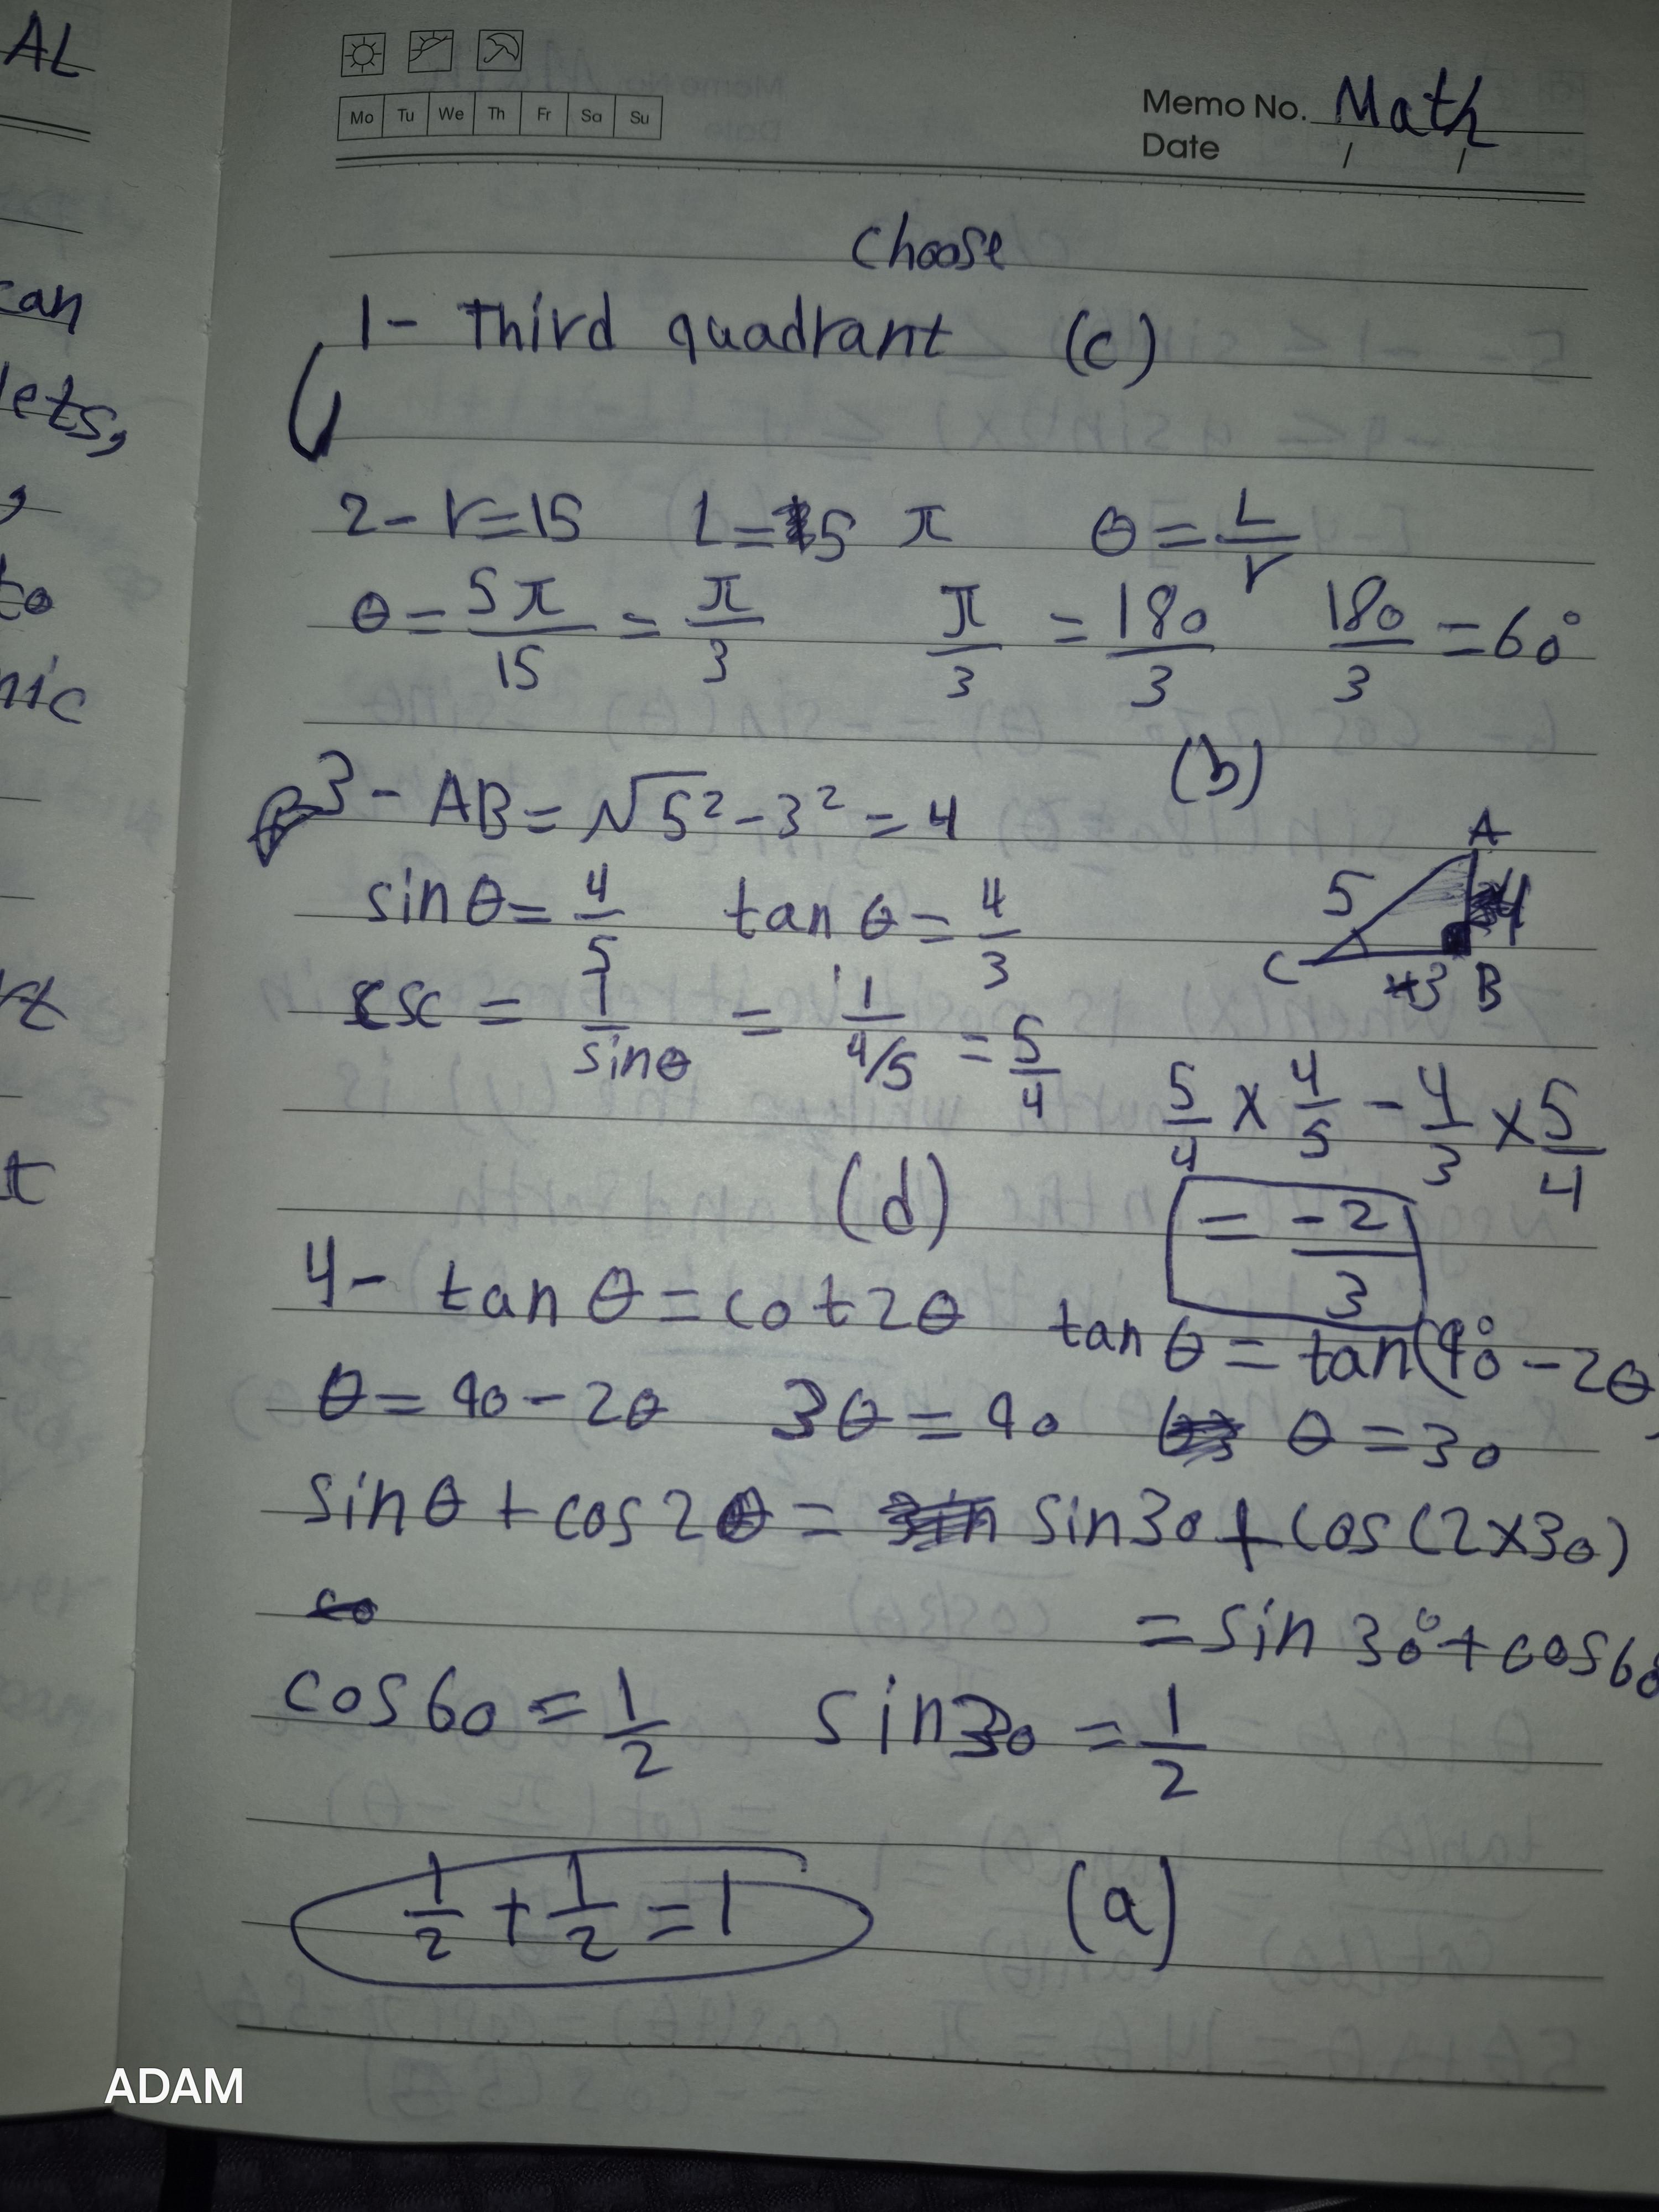 AL
can
lets,
,
to
nic
rt
t
Mo Tu We Th Fr Sa Su
Memo No. Math
Date / /
Choose
1- Third quadrant (c)
2- r=15 L=5 π θ=L/r
θ=5π/15=π/3 π/3=180/3 180/3=60°
(b)
3- AB=√5²-3²=4
A
5 4
C 3 B
sinθ=4/5 tanθ=4/3
csc=1/sinθ=1/4/5=5/4
5/4×4/5-4/3×5/4
=-2/3
(d)
4- tanθ=cot2θ tanθ=tan(90°-2θ)
θ=90-2θ 3θ=90 θ=30
sinθ+cos2θ=sin30+cos(2×30)
=sin30°+cos60
cos60=1/2 sin30=1/2
1/2+1/2=1 (a)
ADAM